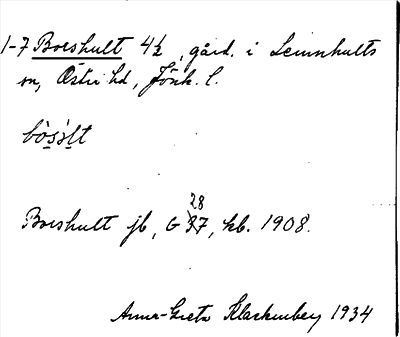 1-7 Boeshult 4½, gård. i Lemnhults
sn, Östra hd, Jönk. l.
bò̤s̤ò̤l̤t
Boeshult jb, G 28 37, kb. 1908.
Anna-Greta Klackenberg 1934